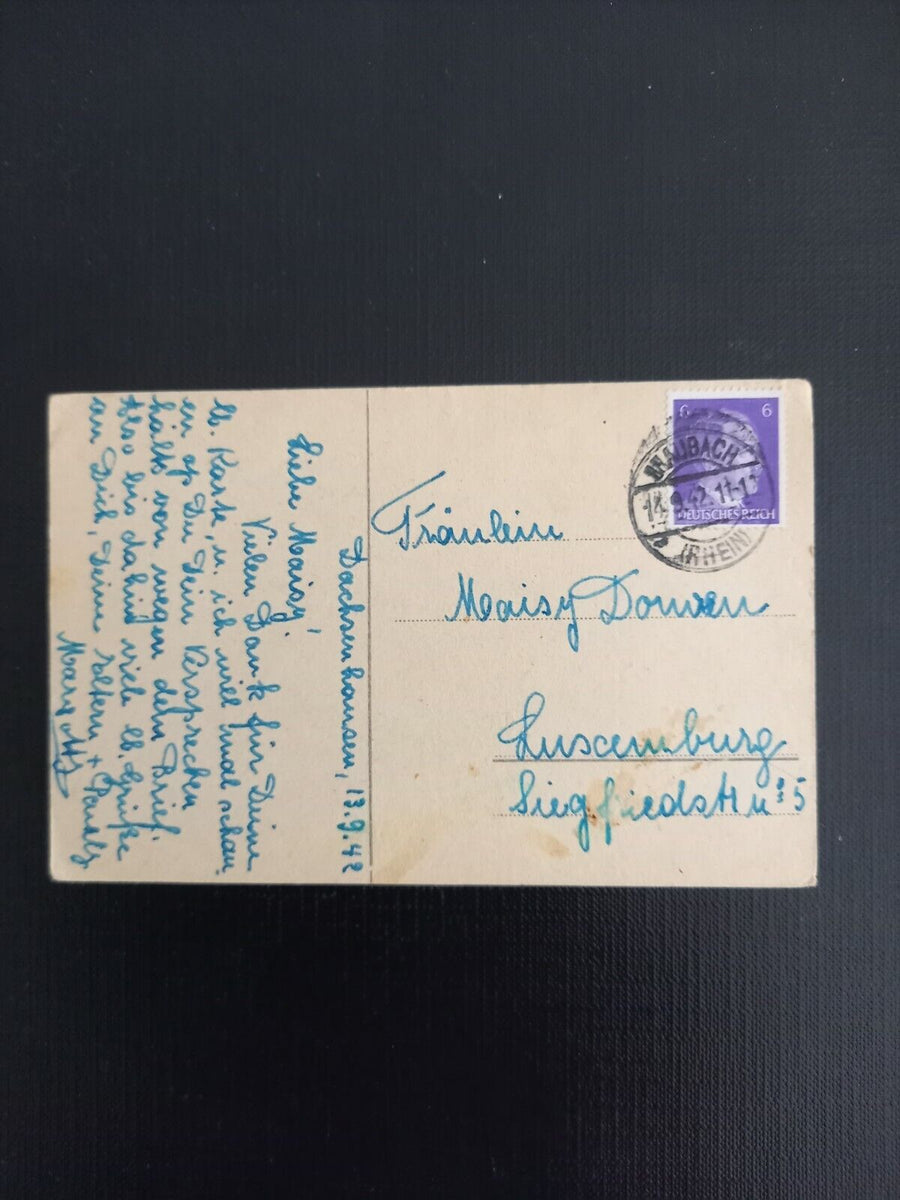 Dachsenhausen, 13.9.42
Liebe Maisy!
Vielen Dank für Deine
lb. Karte, u. ich will mal schau
en op Du Dein Versprechen
hälts von wegen dem Brief.
Also bis dahin viele lb. Grüße
an Dich, Deine Eltern +
Fräulein
Maisy Donven
Luxemburg
Siegfriedstr 5
6
6
DEUTSCHES REICH
BRAUBACH
14.9.42.11-1
(RHEIN)